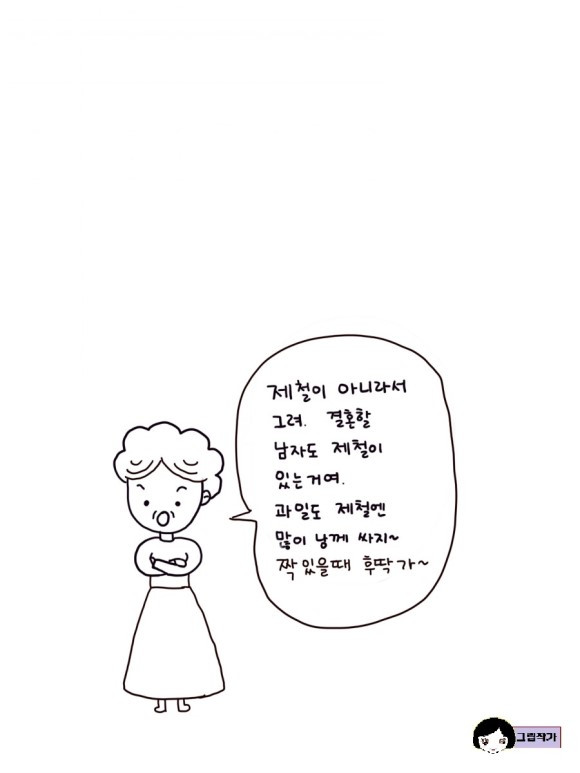 제철이 아니라서
그려. 결혼할
남자도 제철이
있는거여.
과일도 제철엔
많이 낭께 싸지~
짝있을때 후딱가~
그림작가